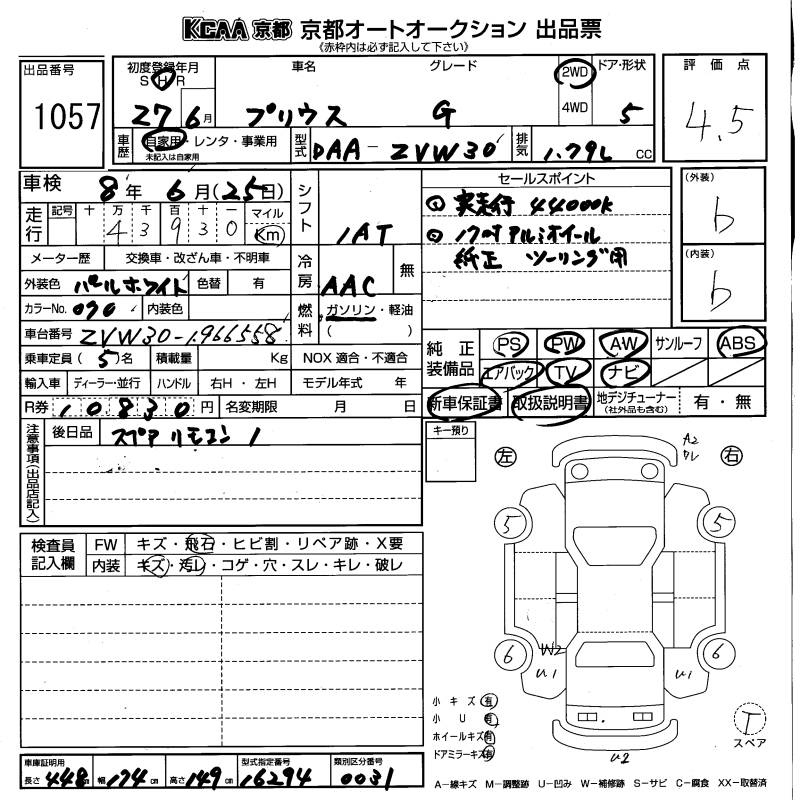 KCAA 京都 京都オートオークション 出品票
《赤枠内は必ず記入して下さい》
出品番号
1057
初度登録年月
S H R
27 6月
車名
プリウス
グレード
G
2WD
4WD
ドア・形状
5
評価点
4.5
車歴
自家用・レンタ・事業用
未記入は自家用
型式
DAA-ZVW30
排気
1.79L cc
車検
8年6月(25日)
走行
記号 十 万 千 百 十 一 マイル
4 3 9 3 0 Km
メーター歴 交換車・改ざん車・不明車
外装色 パールホワイト 色替 有
カラーNo. 070 内装色
車台番号 ZVW30-1966558
乗車定員 (5)名 積載量 Kg NOX 適合・不適合
輸入車 ディーラー・並行 ハンドル 右H・左H モデル年式 年
R券 10830円 名変期限 月 日
シフト
1AT
冷房
AAC
無
燃料
ガソリン・軽油
( )
セールスポイント
① 実走行 44000K
② 17吋アルミホイール
純正 ツーリング用
(外装)
b
(内装)
b
純正装備品
PS PW AW サンルーフ ABS
エアバック TV ナビ
新車保証書 取扱説明書 地デジチューナー
(社外品も含む)
有・無
注意事項(出品店記入)
後日品 スペアリモコン 1
キー預り
左
右
A2
ワレ
5
5
6
6
W2
U1
U1
U2
T
スペア
小キズ 有
小U 有
ホイールキズ 有
ドアミラーキズ 有
検査員記入欄
FW キズ・飛石・ヒビ割・リペア跡・X要
内装 キズ・汚レ・コゲ・穴・スレ・キレ・破レ
車庫証明用
長さ 448cm 幅 174cm 高さ 149cm
型式指定番号
16294
類別区分番号
0031
A-線キズ M-調整跡 U-凹み W-補修跡 S-サビ C-腐食 XX-取替済